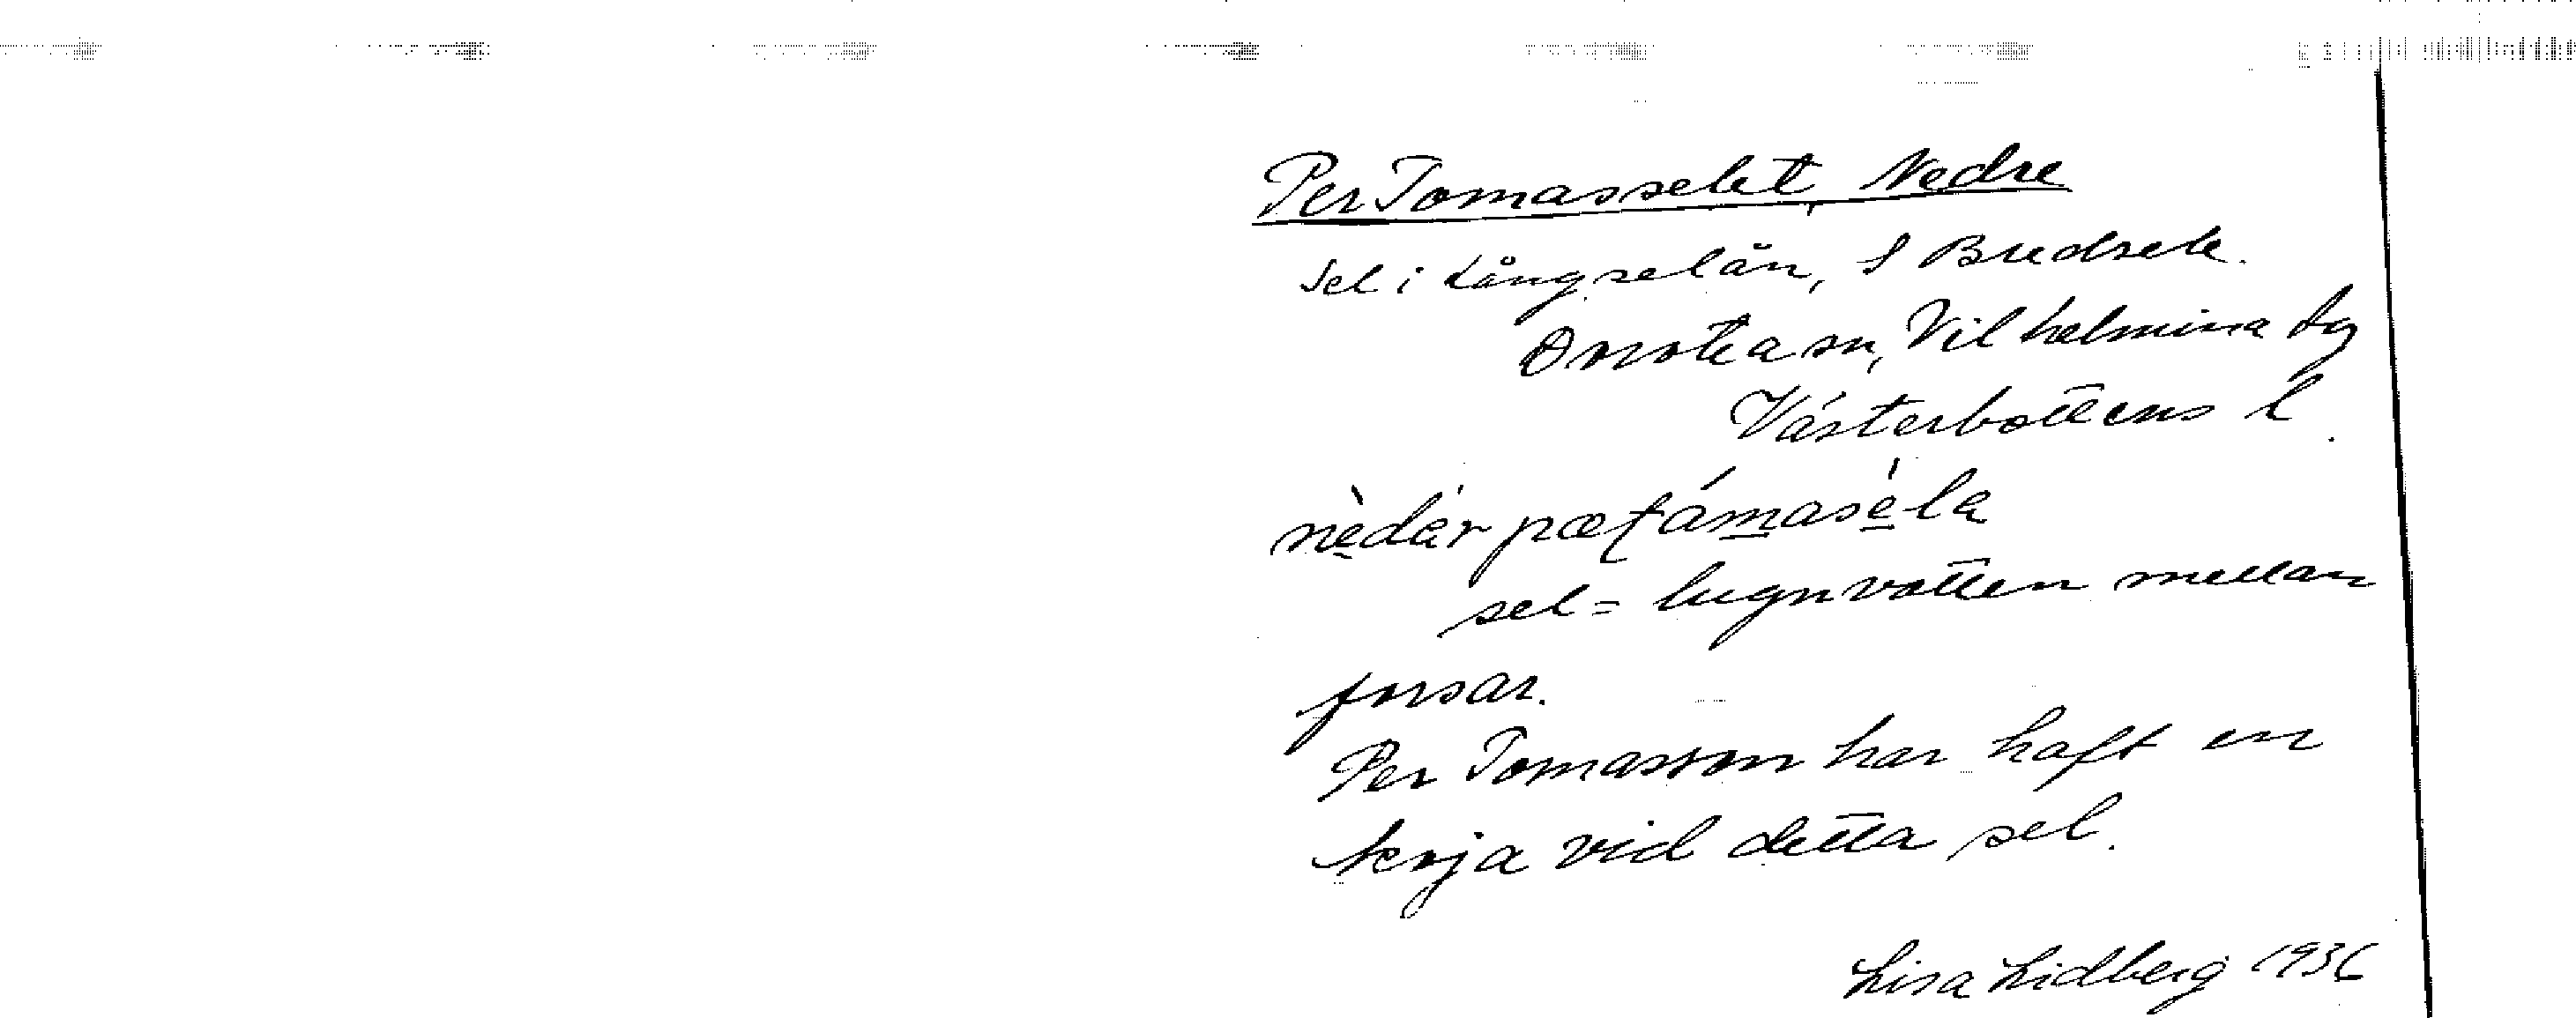 Per Tomasselet, Nedre
Sel i Långselån, S Bredsele.
Dorotea sn, Vilhelmina tg
Västerbottens l.
nèdar pætámaséla
sel = lugnvatten mellan
forsar.
Per Tomasson har haft en
koja vid detta sel.
Lisa Lidberg 1936